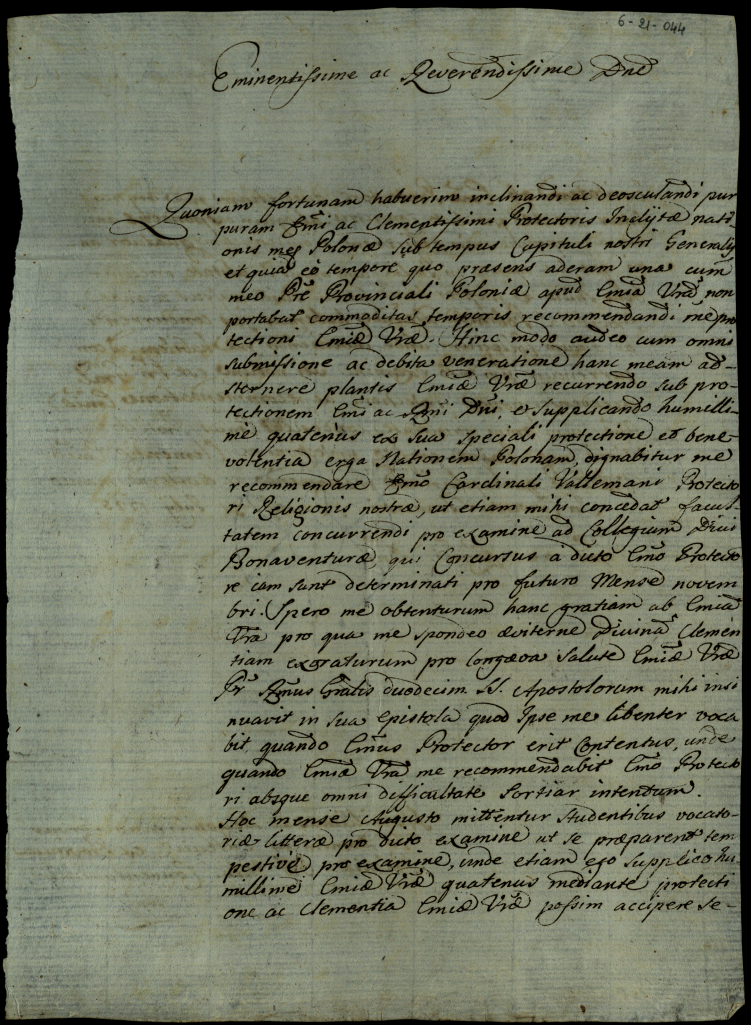 6-21-044
Eminentissime ac Reverendissime Dne
Quoniam fortunam habuerim inclinandi ac deosculandi pur
puram Emi ac Clementissimi Protectoris Inclytæ nati-
onis meę Polonæ sub tempus Capituli nostri Generalis
et quia eo tempore quo præsens aderam una cum
meo Pre Provinciali Poloniæ apud Emiã Vrã non
portabat commoditas temporis recommendandi me pro
tectioni Emiæ Vræ. Hinc modo audeo cum omni
submissione ac debita veneratione hanc meam ad-
sternere plantis Emiæ Vræ recurrendo sub pro-
tectionem Emi ac Rmi Dni, et supplicando humilli-
mè quatenus ex sua speciali protectione et bene-
volentia erga Nationem Polonam, dignabitur me
recommendare Emo Cardinali Valemani Protecto
ri Religionis nostræ, ut etiam mihi concedat facul-
tatem concurrendi pro examine ad Collegium Divi
Bonaventuræ, qui Concursus a dicto Emo Protecto
re iam sunt determinati pro futuro Mense novem
bri. Spero me obtenturum hanc gratiam ab Emiã
Vrã pro qua me spondeo æviterne Divinã Clemen
tiam exoraturum pro longæva salute Emiæ Vræ
Pr Rmus Gralis duodecim SS. Apostolorum mihi insi
nuavit in sua Epistola quod Ipse me libenter voca
bit, quando Emus Protector erit Contentus, unde
quando Emiæ Vrã me recommendabit Emo Protecto
ri absque omni difficultate sortiar intentum.
Hoc mense Augusto mittentur studentibus vocato-
riæ litteræ pro dicto examine ut se præparent tem
pestivè pro examine, unde etiam ego supplico hu
millimè Emiæ Vræ quatenus mediante protecti
one ac Clementia Emiæ Vræ possim accipere se-